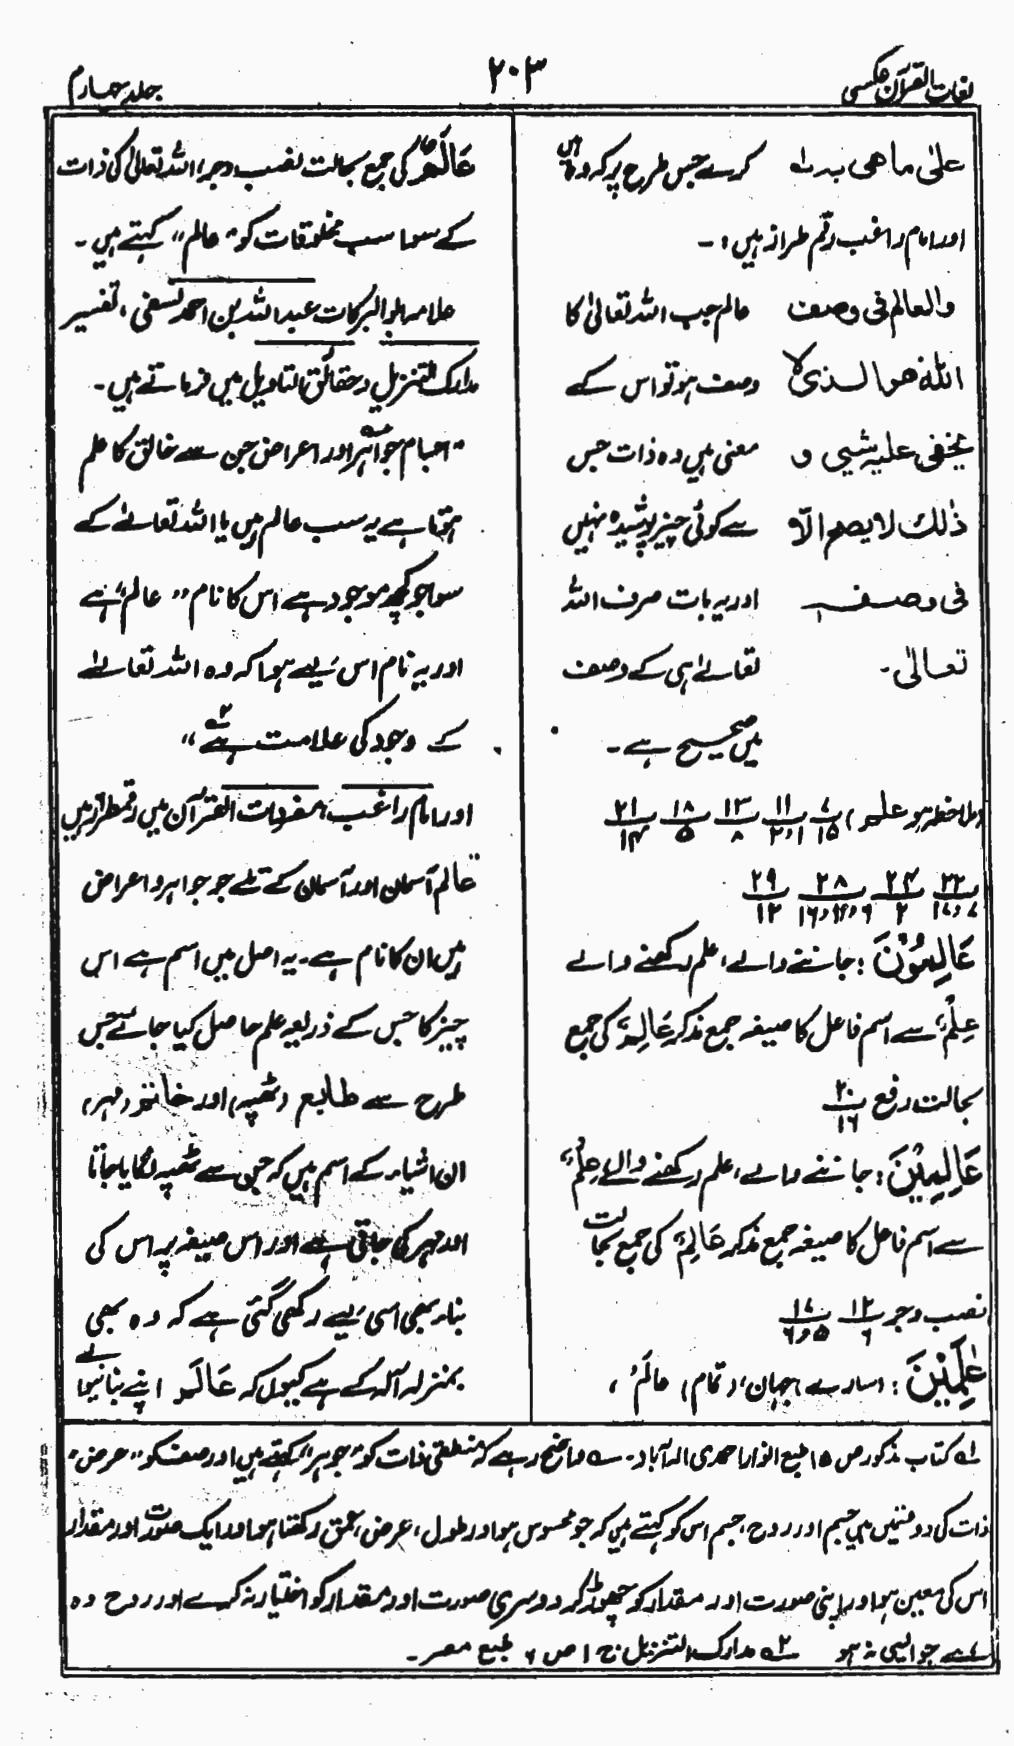 لغات القرآن عکسی
۲۰۳
جلد چہارم
علیٰ ما هی بدله
کرے جس طرح پر کہ وہ ہیں
اور امام راغب رقم طراز ہیں :-
والعالم فی وصف
عالم جب اللہ تعالیٰ کا
الله هو الذی لا
وصف ہو تو اس کے
یخفی علیه شیی و
معنی ہیں وہ ذات جس
ذٰلك لا یصح الّا
سے کوئی چیز پوشیدہ نہیں
فی وصفه
اور یہ بات صرف اللہ
تعالیٰ -
تعالےٰ ہی کے وصف
میں صحیح ہے -
(ملاحظہ ہو علم) ۷/۱۵ ۱۱/۲،۱ ۱۳/۸ ۱۸/۵ ۲۱/۱۴
۲۲/۱۷،۷ ۲۴/۲ ۲۸/۱۶،۴،۶ ۲۹/۱۲
عَالِمُوْنَ : جاننے والے ، علم رکھنے والے
عِلْمٌ سے اسم فاعل کا صیغہ جمع مذکر عَالِمٌ کی جمع
بحالت رفع ۲۰/۱۶
عَالِمِیْنَ : جاننے والے ، علم رکھنے والے عِلْمٌ
سے اسم فاعل کا صیغہ جمع مذکر عَالِمٌ کی جمع بحالت
نصب وجر ۱۲/۶ ۱۷/۶،۵
عٰلَمِیْنَ : (سارے) جہان ، (تمام) عالَمُ ،
عَالَمٌ کی جمع بحالت نصب وجر ، اللہ تعالیٰ کی ذات
کے سوا سب مخلوقات کو "عالم" کہتے ہیں -
علامہ ابو البرکات عبد اللہ بن احمد نسفی ، تفسیر
مدارک التنزیل و حقائق التاویل میں فرماتے ہیں -
" اجسام جواہر اور اعراض جن سے خالق کا علم
ہوتا ہے یہ سب عالم ہیں یا اللہ تعالےٰ کے
سوا جو کچھ موجود ہے اس کا نام "عالم" ہے
اور یہ نام اس لیے ہوا کہ وہ اللہ تعالےٰ
کے وجود کی علامت ہے ۲"
اور امام راغب ، مفردات القرآن میں رقمطراز ہیں
"عالم آسمان اور آسمان کے تلے جو جواہر و اعراض
ہیں ان کا نام ہے - یہ اصل میں اسم ہے اس
چیز کا جس کے ذریعہ علم حاصل کیا جائے جس
طرح سے طابع (ٹھپہ) اور خاتم (مہر)
ان اشیاء کے اسم ہیں کہ جن سے ٹھپہ لگایا جاتا
اور مہر کی جاتی ہے اور اس صیغہ پر اس کی
بناء بھی اسی لیے رکھی گئی ہے کہ وہ بھی
بمنزلہ آلہ کے ہے کیوں کہ عَالَم اپنے بنانیوالے
لہ کتاب مذکور ص ۱۵ طبع انوار احمدی الہ آباد - سہ واضح رہے کہ منطقی ذات کو "جوہر" کہتے ہیں اور صفت کو "عرض"
ذات کی دو قسمیں ہیں جسم اور روح ، جسم اس کو کہتے ہیں کہ جو محسوس ہو اور طول ، عرض ، عمق رکھتا ہو اور ایک صورت اور مقدار
اس کی معین ہو اور اپنی صورت اور مقدار کو چھوڑ کر دوسری صورت اور مقدار کو اختیار نہ کرے اور روح وہ
ہے جو ایسی نہ ہو ۲ہ مدارک التنزیل ج ۱ ص ۶ طبع مصر -